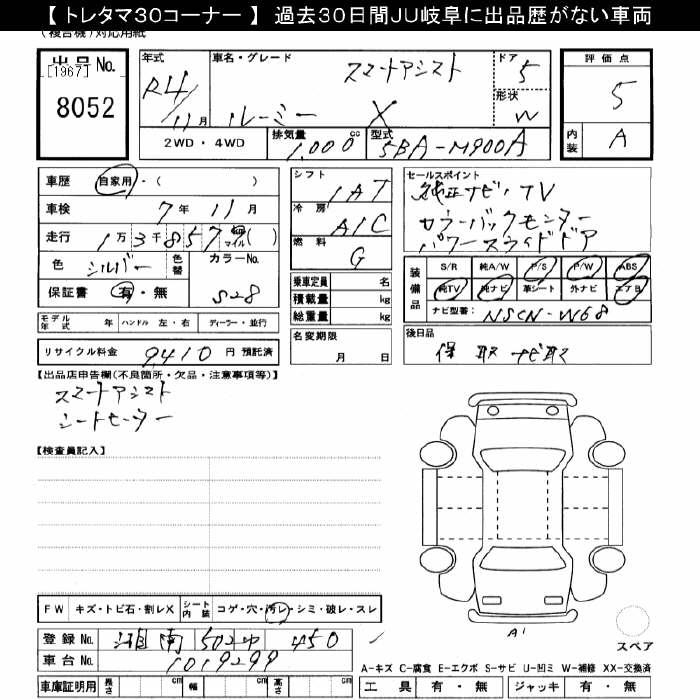 【 トレタマ30コーナー 】 過去30日間JU岐阜に出品歴がない車両
(複合機)対応用紙
出品No.
[1967]
8052
年式
R4/11月
車名・グレード
スマートアシスト
ルーミー X
ドア 5
形状 W
評価点
5
内装 A
2WD・4WD
排気量 1,000 cc
型式 5BA-M900A
車歴 自家用・( )
車検 7年 11月
走行 1万3千857 マイル ( )
色 シルバー 色替 カラーNo. S28
保証書 有・無
シフト 1AT
冷房 A/C
燃料 G
乗車定員 名
積載量 kg
総重量 kg
セールスポイント
純正ナビ・TV
カラーバックモニター
パワースライドドア
装備品
S/R 純A/W P/S P/W ABS
純TV 純ナビ 革シート 外ナビ エアB
ナビ型番: NSCN-W68
モデル年式 年 ハンドル 左・右 ディーラー・並行
リサイクル料金 9,410 円 預託済
名変期限
月 日
後日品
保 取 ナビ取
【出品店申告欄(不良箇所・欠品・注意事項等)】
スマートアシスト
シートヒーター
【検査員記入】
FW キズ・トビ石・割レX シート内装 コゲ・穴・汚レ・シミ・破レ・スレ
登録No. 湘南 502 450
車台No. 1019299
車庫証明用 長さ cm 幅 cm 高さ cm
A1
スペア
A-キズ C-腐食 E-エクボ S-サビ U-凹ミ W-補修 XX-交換済
工具 有・無 ジャッキ 有・無